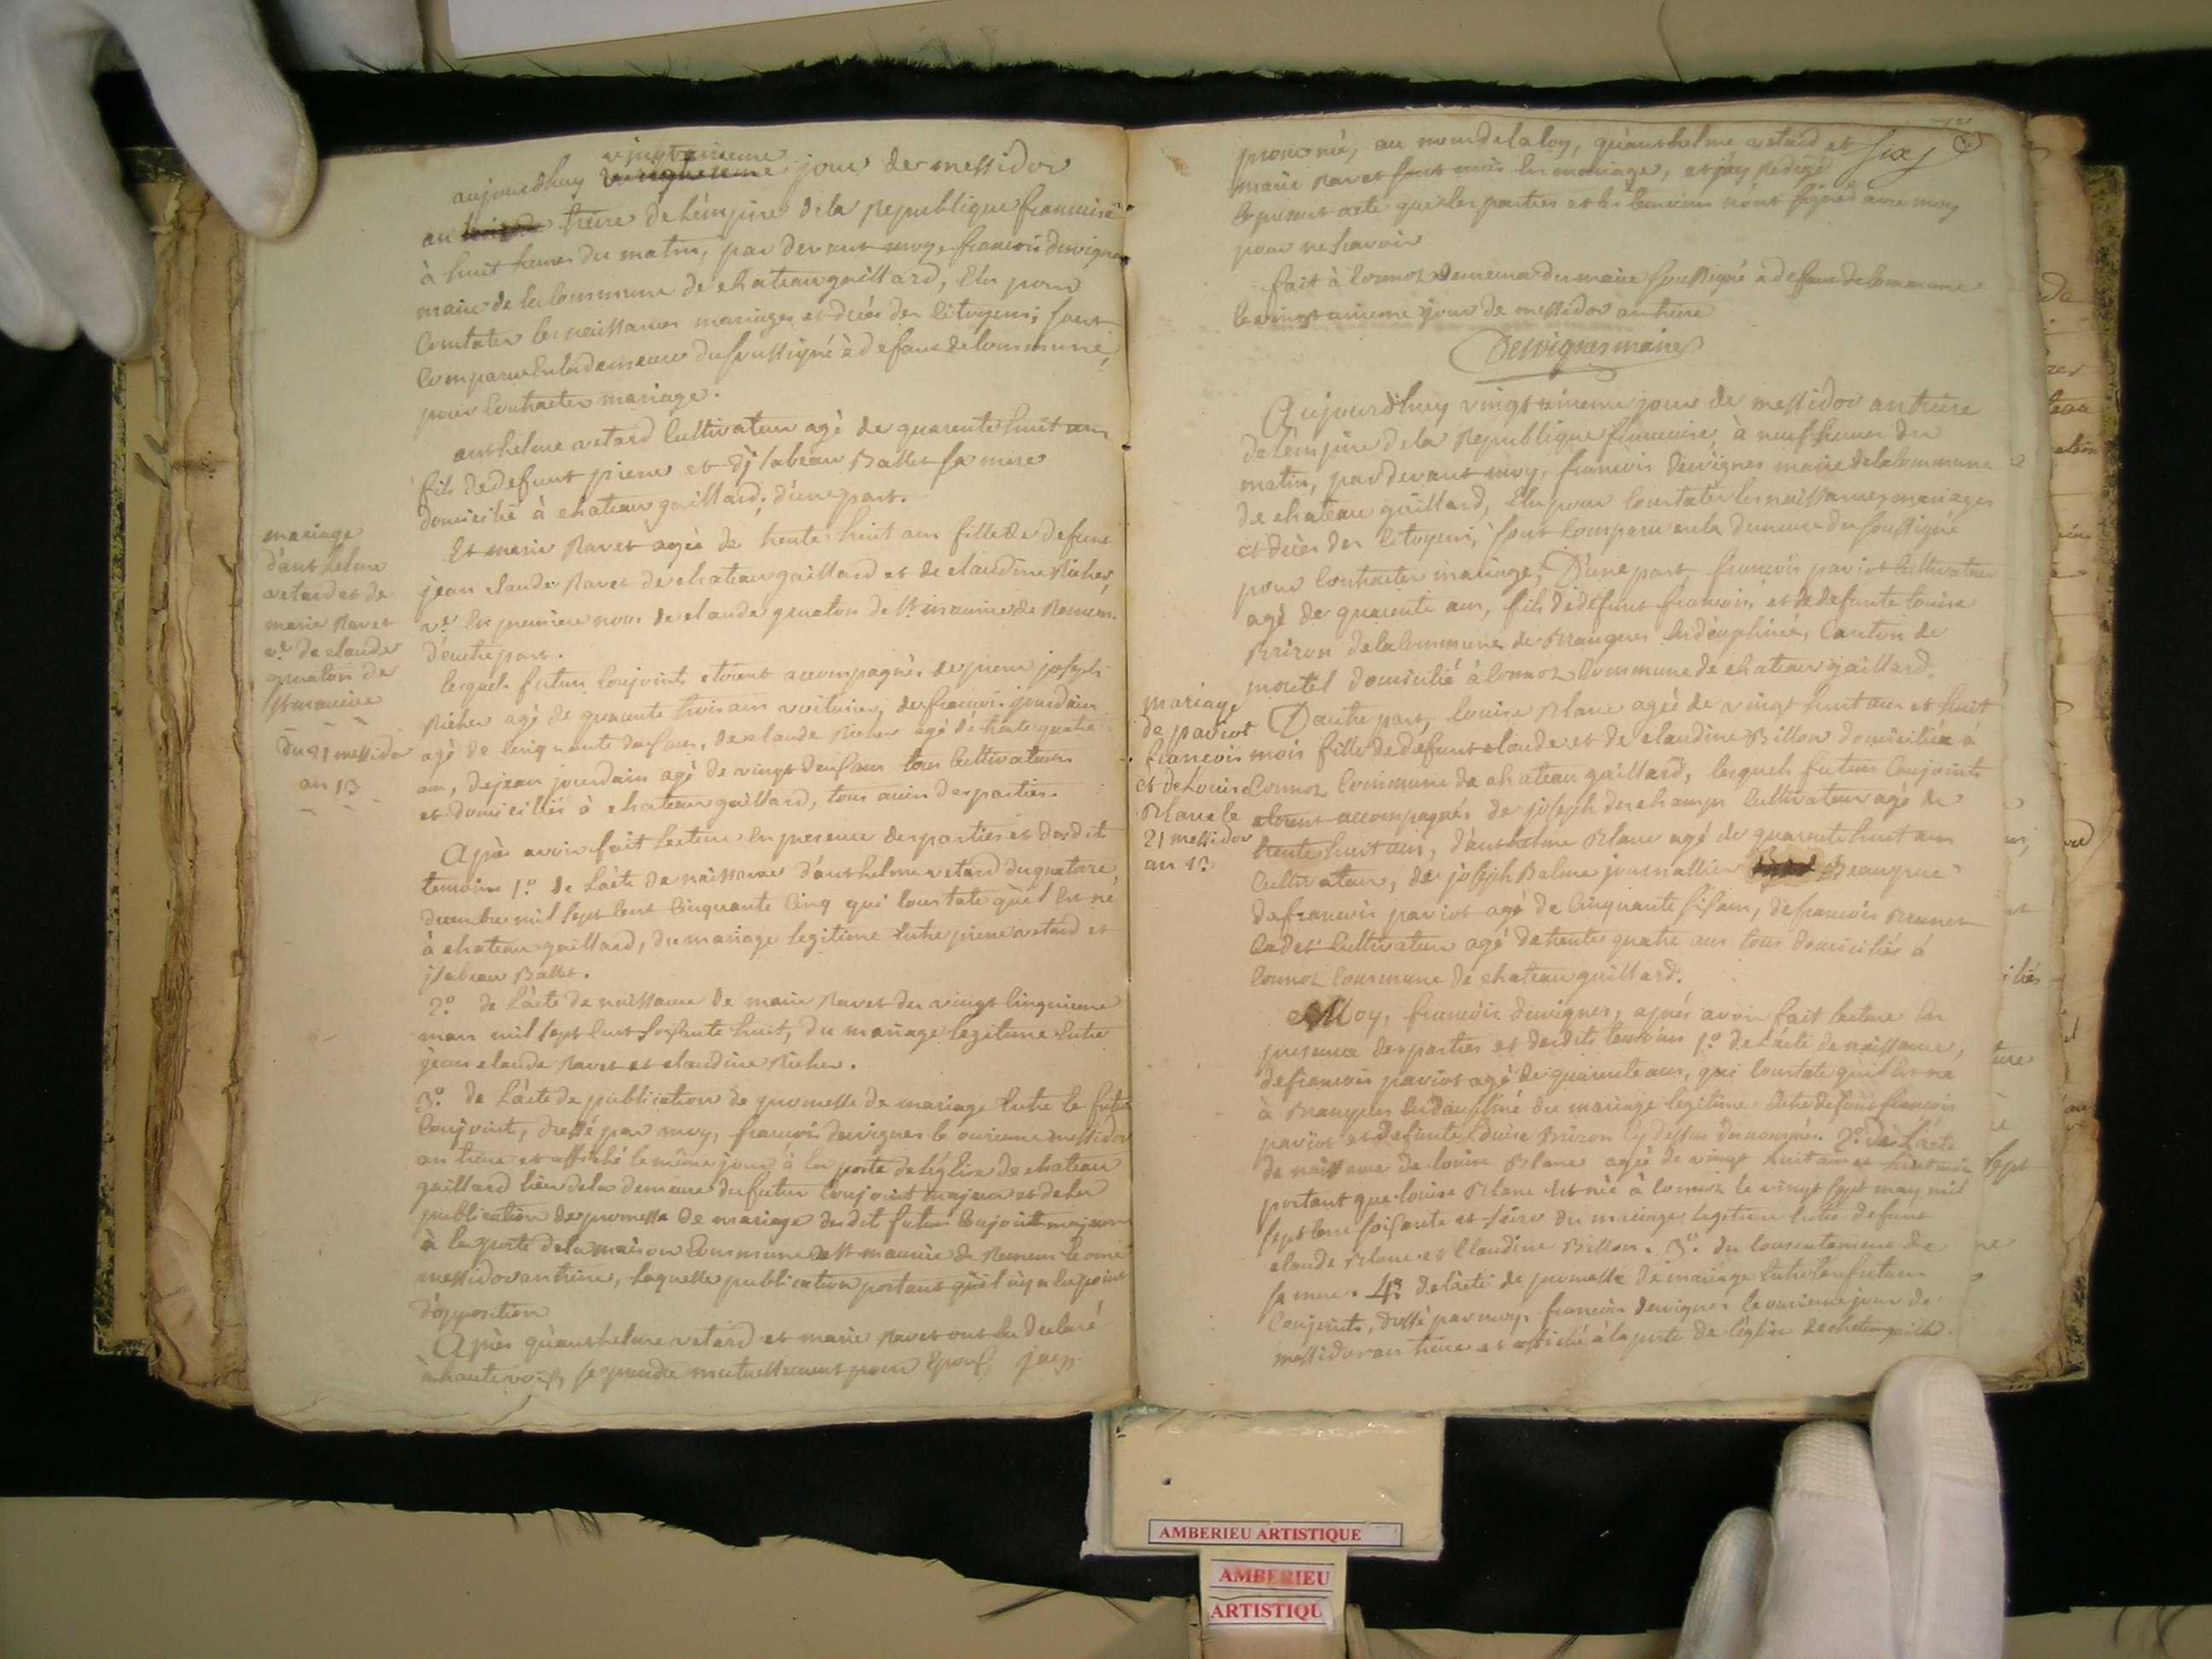 vingtunieme
aujourdhuy jour de messidor
an treize de L'empire de la Republique francaise
à huit heures du matin, par devant moy, francois deuvignes
maire de la Commune de chateaugaillard, Elu pour
Constater les naissances mariages et décès des Citoyens, sont
Comparus En la demeure du soussigné à defaut de Commune,
pour Contracter mariage.
anthelme retard Cultivateur agé de quarente huit ans
fils de defunt pierre et d'isabeau Ballet sa mere
domicilié à chateaugaillard, d'une part.
Et marie Ravet agée de trente huit ans fille de defunt
jean claude Ravet de chateaugaillard et de claudine Richer,
ve. En premiere noce de claude gruaton de St. maurice de Remens.
d'autre part.
lesquels futurs Conjoints etoient accompagnés de pierre joseph
Richer agé de quarente trois ans voiturier, de francois jourdain
agé de cinquante deux ans, de claude Richer agé de trente quatre
ans, de jean jourdain agé de vingt deux ans tous Cultivateurs
et domiciliés à chateaugaillard, tous amis des parties.
Après avoir fait lecture En presence des parties et desdit
temoins 1.° de L'acte de naissance d'anthelme retard du quatorze
decembre mil sept Cent Cinquante Cinq qui Constate qu'il Est né
à chateaugaillard, du mariage legitime Entre pierre retard et
isabeau Ballet.
2.° de L'acte de naissance de marie Ravet du vingt Cinquieme
mars mil sept Cent soixante huit, du mariage legitime Entre
jean claude Ravet et claudine Richer.
3.° de L'acte de publication de promesse de mariage Entre le futur
Conjoint, dressé par moy, francois deuvignes le onzieme messidor
an treize et affiché le même jour à la porte de l'église de chateau
gaillard lieu de la demeure du futur Conjoint majeur et de la
publication de promesse de mariage dudit futur Conjoint majeur
à la porte de la maison Commune de St maurice de Remens le onze
messidor an treize, laquelle publication portant qu'il n'y a Eu point
d'opposition
Après qu'anthelme retard et marie Ravet ont Eu declaré
à haute voix, se prendre mutuellement pour Epoux, jay
mariage
d'anthelme
retard et de
marie Ravet
ve. de claude
gruaton de
St maurice
du 21 messidor
an 13
prononcé, au nom de la loy, qu'anthelme retard et
six
marie Ravet sont unis En mariage, et j'ay redigé
le present acte que les parties et les temoins n'ont signés avec moy
pour ne savoir
fait à Cormoz demeure du maire soussigné a defaut de Commune
le vingt unieme jour de messidor an treize
Deuvignes maire
Aujourdhuy vingt unieme jour de messidor an treize
de L'empire de la Republique francaise, à neuf heures du
matin, par devant moy, francois deuvignes maire de la Commune
de chateau gaillard, Elu pour Constater les naissances mariages
et décès des Citoyens, sont Comparu en la demeure du soussigné
pour Contracter mariage, D'une part, francois pariot Cultivateur
agé de quarente ans, fils de defunt francois, et de defunte louise
Brizon de la Commune de Brangues En dauphiné, Canton de
mortel domicilié à Cormoz Commune de chateau gaillard.
Dautre part, louise Blanc agée de vingt huit ans et huit
mois fille de defunt claude et de claudine Billon domiciliée à
Cormoz Commune de chateau gaillard, lesquels futurs Conjoints
etoient accompagnés de joseph deschamps Cultivateur agé de
trente huit ans, d'anthelme Blanc agé de quarente huit ans
Cultivateur, de joseph Balme journallier
de francois pariot agé de Cinquante six ans, de francois Brunet
Cadet Cultivateur agé de trente quatre ans tous domiciliés à
Cormoz Commune de chateau gaillard.
Moy, francois deuvignes, après avoir fait lecture En
presence des parties et desdits temoins 1.° de L'acte de naissance,
de francois pariot agé de quarente ans, qui Constate qu'il Est né
à Brangues En dauphiné du mariage legitime Entre defunt francois
pariot et defunte Louise Brizon Cy dessus denommés. 2.° de L'acte
de naissance de louise Blanc agée de vingt huit ans et huit mois
portant que louise Blanc Est née à Cormoz le vingt sept may mil
sept Cent soixante et seize du mariage legitime Entre defunt
claude Blanc et Claudine Billon. 3.° du Consentement de
sa mere. 4.° de L'acte de promesse de mariage Entre les futurs
Conjoints, dressé par moy, francois deuvignes le onzieme jour de
messidor an treize et affiché à la porte de l'église de chateaugaillard.
mariage
de pariot
francois
et de Louise
Blanc le
21 messidor
an 13
AMBERIEU ARTISTIQUE
AMBERIEU
ARTISTIQU